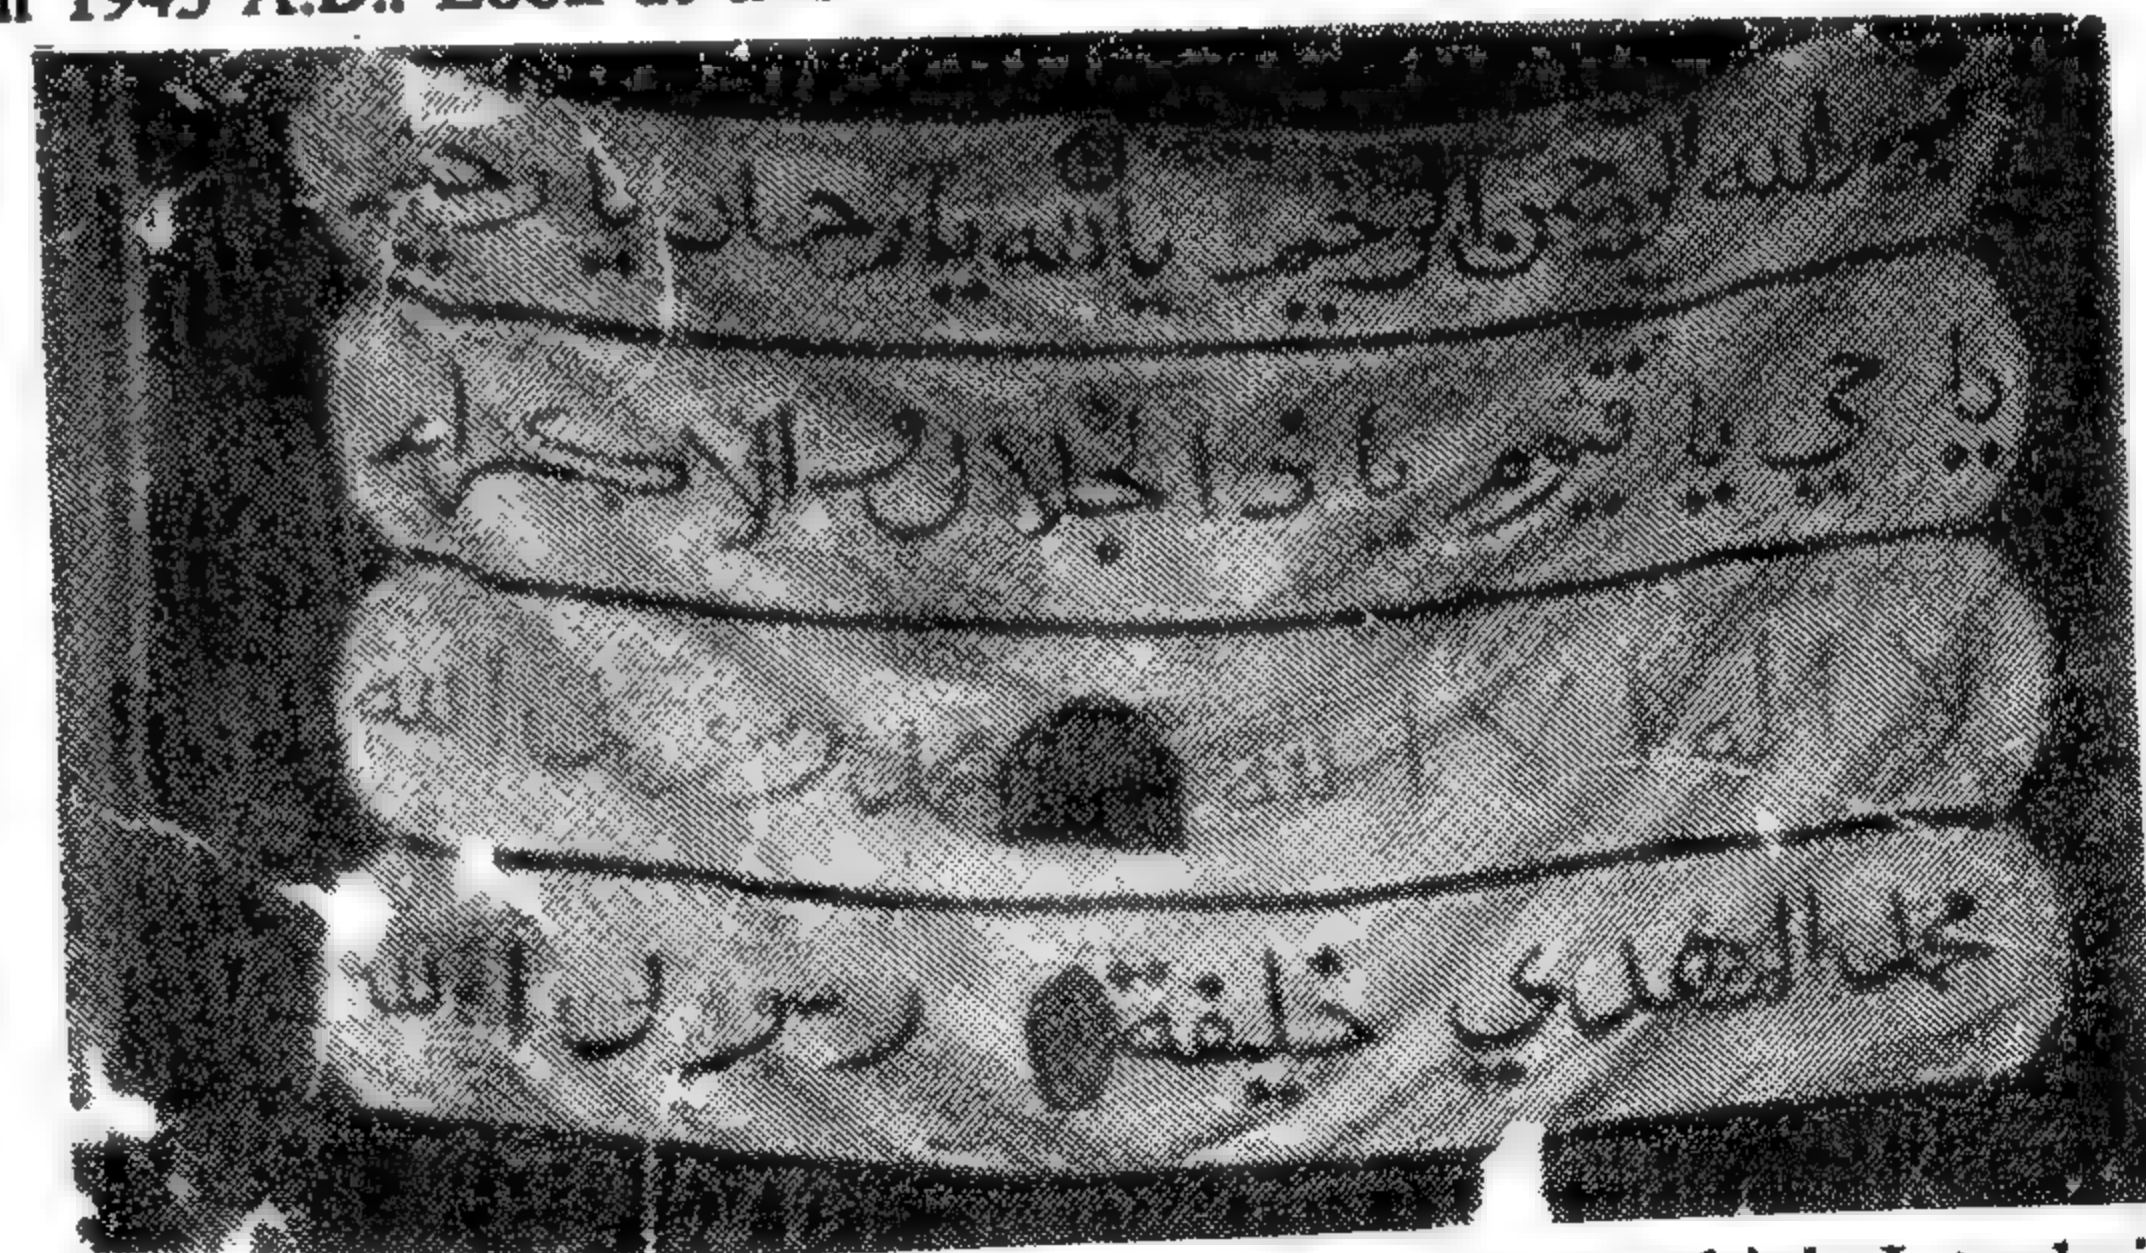 1945 A.D.:
بسم الله الرحمن الرحيم يا الله يا رحمان يا
يا حي يا قيوم يا ذا الجلال والاكرام
لا اله الا الله محمد رسول الله
محمد المهدي خليفة رسول الله